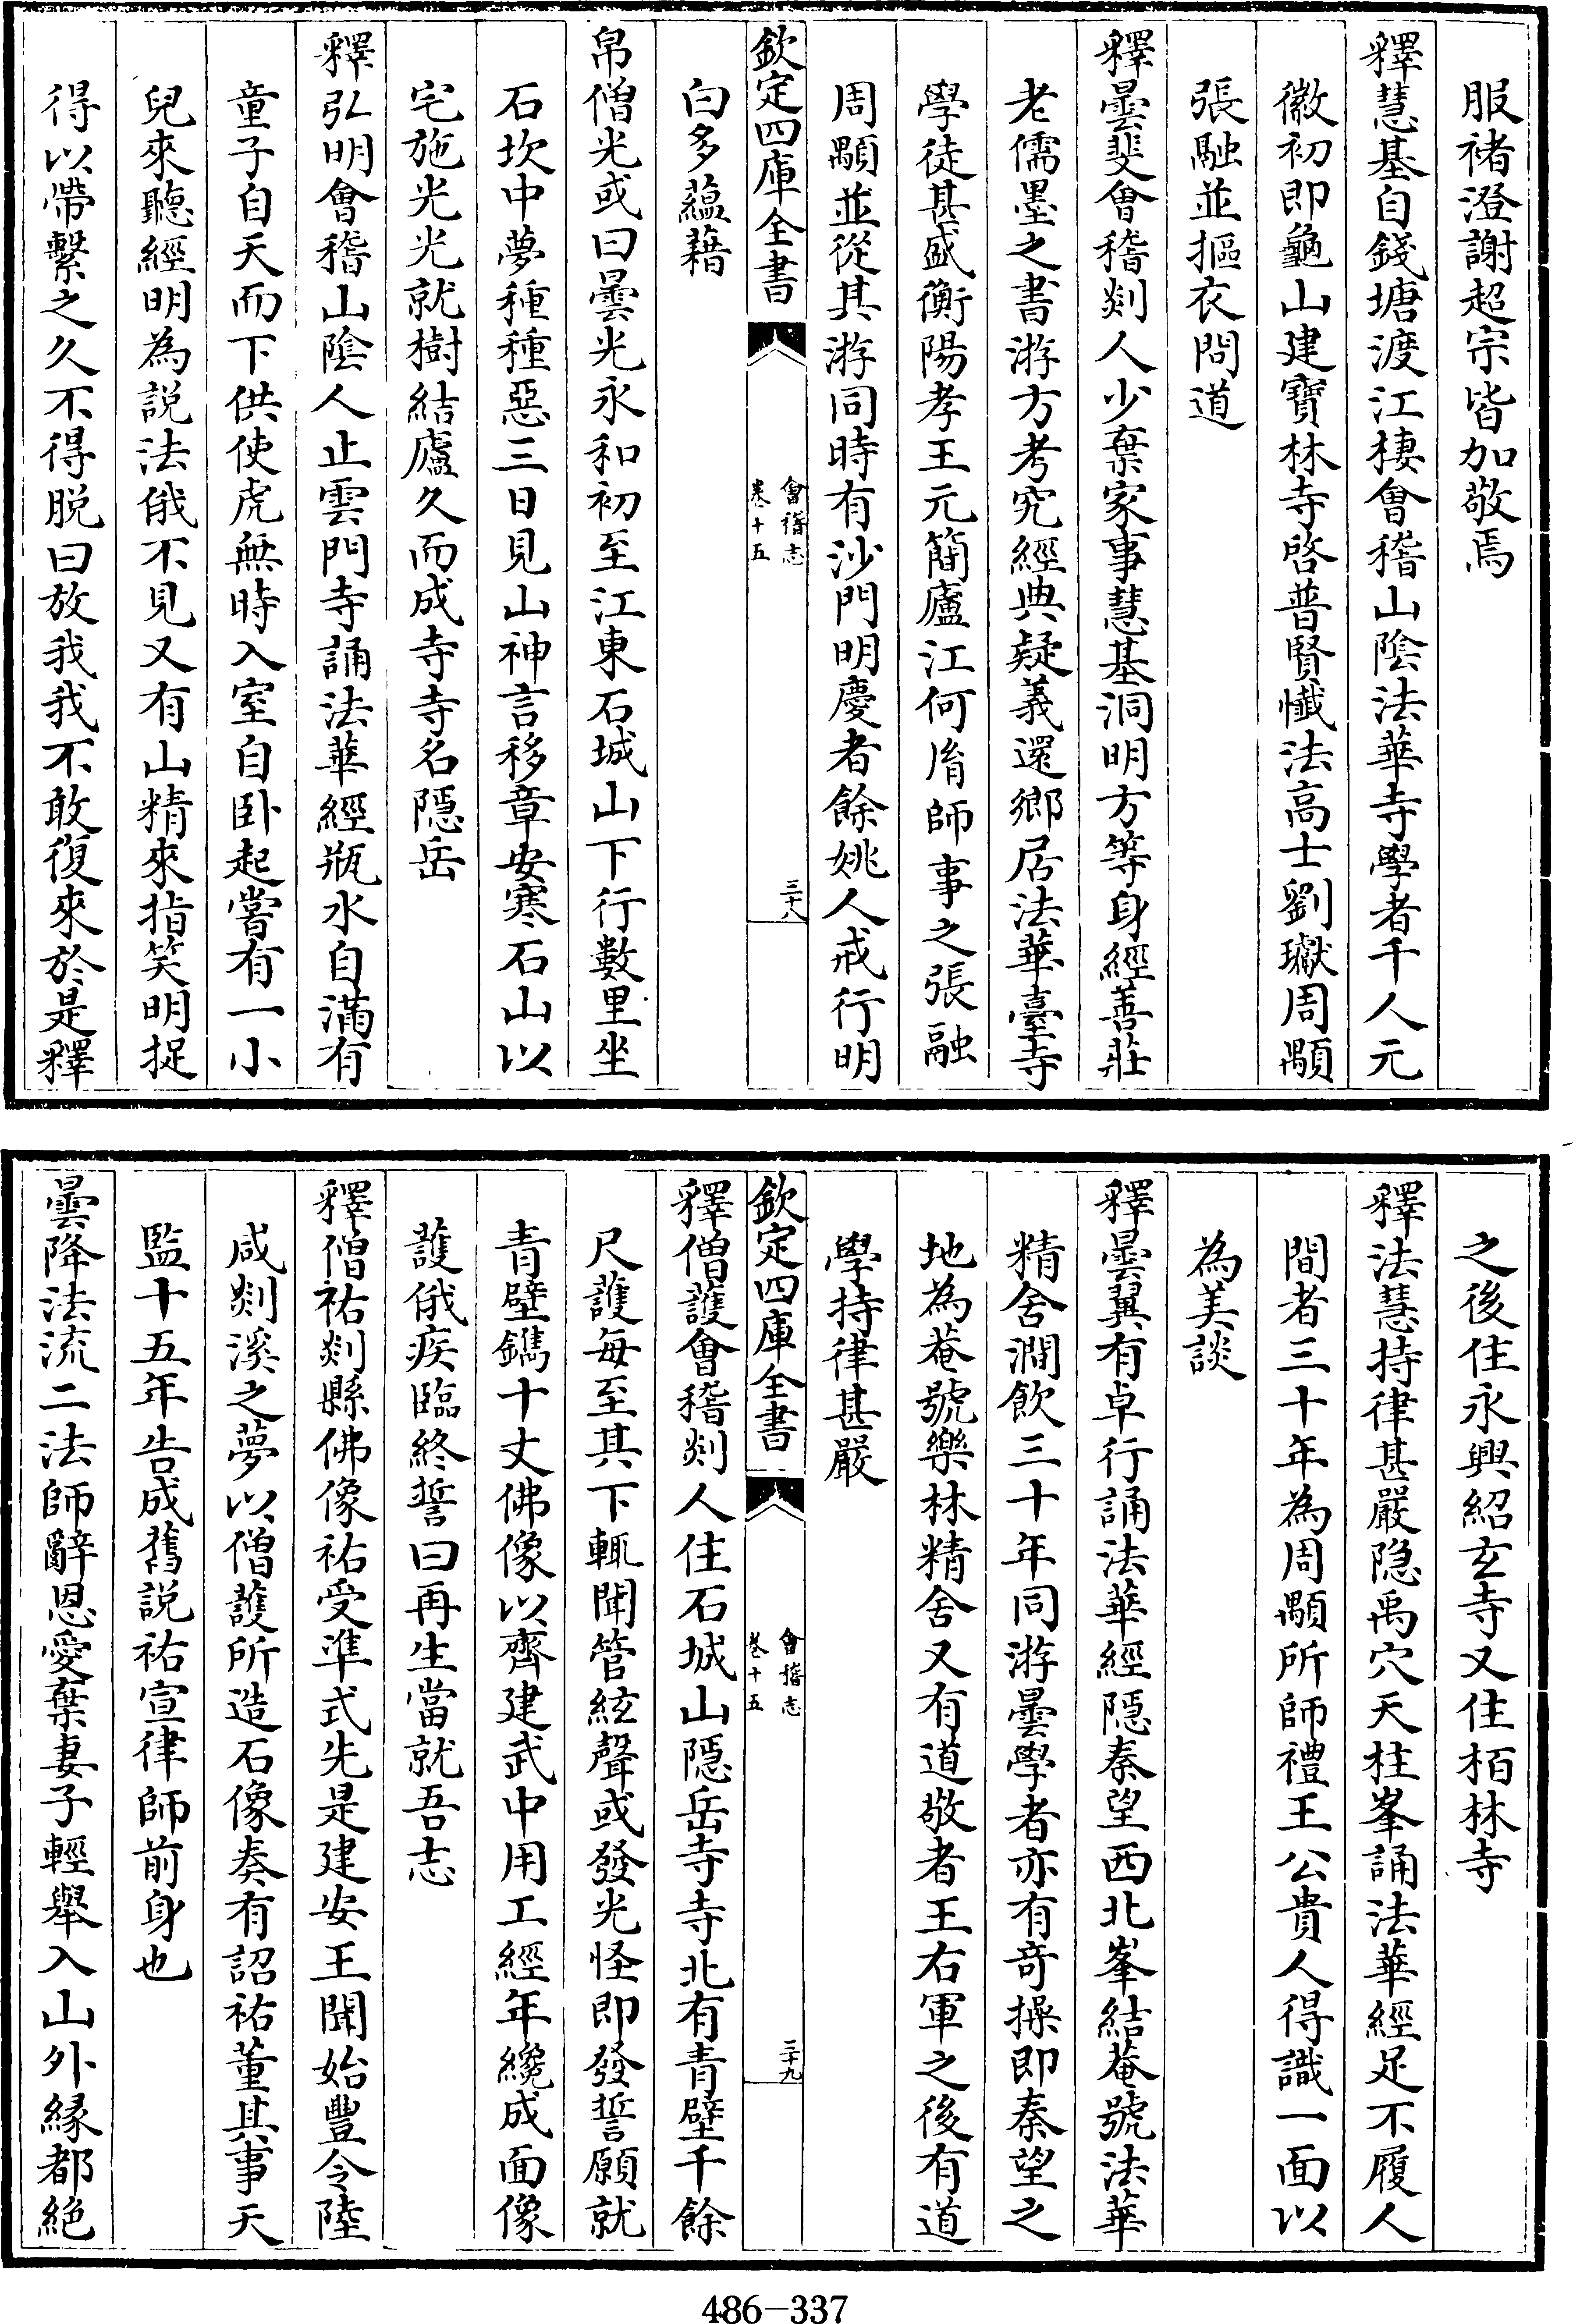 服褚澄謝超宗皆加敬焉
釋慧基自錢塘渡江棲會稽山陰法華寺學者千人元
徽初即龜山建寶林寺啓普賢懺法高士劉瓛周顒
張融並摳衣問道
釋曇斐會稽剡人少棄家事慧基洞明方等身經善莊
老儒墨之書游方考究經典疑義還鄉居法華臺寺
學徒甚盛衡陽孝王元簡廬江何胤師事之張融
周顒並從其游同時有沙門明慶者餘姚人戒行明
欽定四庫全書
會稽志
卷十五
三十八
白多蘊藉
帛僧光或曰曇光永和初至江東石城山下行數里坐
石坎中夢種種惡三日見山神言移章安寒石山以
宅施光光就樹結廬久而成寺寺名隱岳
釋弘明會稽山陰人止雲門寺誦法華經瓶水自滿有
童子自天而下供使虎無時入室自卧起嘗有一小
兒來聽經明為説法俄不見又有山精來指笑明捉
得以帶繫之久不得脱曰放我我不敢復來於是釋
之後住永興紹玄寺又住栢林寺
釋法慧持律甚嚴隠禹穴天柱峯誦法華經足不履人
間者三十年為周顒所師禮王公貴人得識一面以
為美談
釋曇翼有卓行誦法華經隠秦望西北峯結菴號法華
精舍澗飲三十年同游曇學者亦有奇操即秦望之
地為菴號樂林精舍又有道敬者王右軍之後有道
學持律甚嚴
欽定四庫全書
會稽志
卷十五
三十九
釋僧護會稽剡人住石城山隠岳寺寺北有青壁千餘
尺護每至其下輒聞管絃聲或發光怪即發誓願就
青壁鐫十丈佛像以齊建武中用工經年纔成面像
護俄疾臨終誓曰再生當就吾志
釋僧祐剡縣佛像祐受準式先是建安王聞始豐令陸
咸剡溪之夢以僧護所造石像奏有詔祐董其事天
監十五年告成舊説祐宣律師前身也
曇降法流二法師辭恩愛棄妻子輕舉入山外緣都絶
486-337